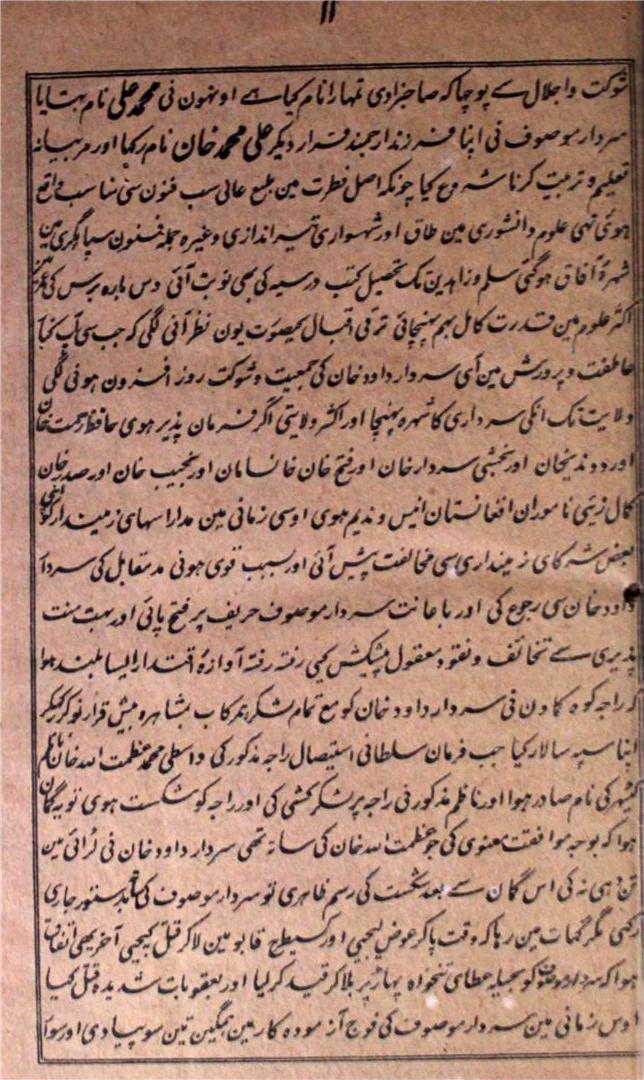 ۱۱
شوکت و اجلال سے پوچھا کہ صاحبزادی تمہارا نام کیا ہے اونہون نی محمد علی نام بتایا
سردار موصوف نی اپنا فرزند ارجمند قرار دیکر علی محمد خان نام رکہا اور مربیانہ
تعلیم و تربیت کرنا شروع کیا چونکہ اصل فطرت مین بلیغ عالی سب فنون سی مناسب واقع
ہوئی تہی علوم دانشوری مین طاق اور شہسواری تیر اندازی وغیرہ جملہ فنون سپاگری مین
شہرۂ آفاق ہوگئی سلم و زاہدین تک تحصیل کتب درسیہ کی بھی نوبت آئی دس بارہ برس کی عمر مین
اکثر علوم مین قدرت کامل بہم پہنچائی ترقی اقبال بحیصوت یون نظر آنی لگی کہ جب سی آپ
عاطفت و پرورش مین آی سردار داود خان کی جمعیت و شوکت روز افزون ہونی لگی
ولایت تک انکی سرداری کا شہرہ پہنچا اور اکثر ولایتی اگر فرمان پذیر ہوی حافظ رحمت خان
اور دوندیخان اور بخشی سردار خان اور فتح خان خانسامان اور نجیب خان اور صدر خان
کمال زئی نا موران افغانستان انیس و ندیم ہوی اوسی زمانی مین مدار اسہای زمیندار کو
بعض شرکای زمینداری سی مخالفت پیش آئی اور بسبب قوی ہونی مد مقابل کی سردار
داود خان سی رجوع کی اور با عانت سردار موصوف حریف پر فتح پائی اور بہت منت
پذیری سے تحائف و نقود معقول پیشکش کیی رفتہ رفتہ آوازۂ اقتدار ایسا بلند ہوا
کہ راجہ کوہ کماون نی سردار داود خان کو مع تمام لشکر ہمرکاب بمشاہرہ بیش قرار نوکر رکہکر
اپنا سپہ سالار کیا جب فرمان سلطانی استیصال راجہ مذکور کی واسطی محمد عظمت اللہ خان ناظم
کٹیہر کی نام صادر ہوا اور ناظم مذکور نی راجہ پر لشکر کشی کی اور راجہ کو شکست ہوی تو یہ گمان
ہوا کہ بوجہ موافقت معنوی کی جو عظمت اللہ خان کی ساتہ تھی سردار داود خان نی لڑائی مین
تن دہی نہ کی اس گمان سے بعد شکست کی رسم ظاہری تو سردار موصوف کی بدستور جاری
رکہی مگر گہات مین رہا کہ وقت پاکر عوض لیجیی اور کسیطرح قابو مین لاکر قتل کیجیی آخر بھی اتفاق
ہوا کہ سردار موصوف کو بحیلہ عطای تنخواہ پہاڑ پر بلا کر قید کر لیا اور بعقوبات شدیدہ قتل کیا
اوس زمانی مین سردار موصوف کی فوج آزمودہ کار مین تین سو پیادی اور سوار